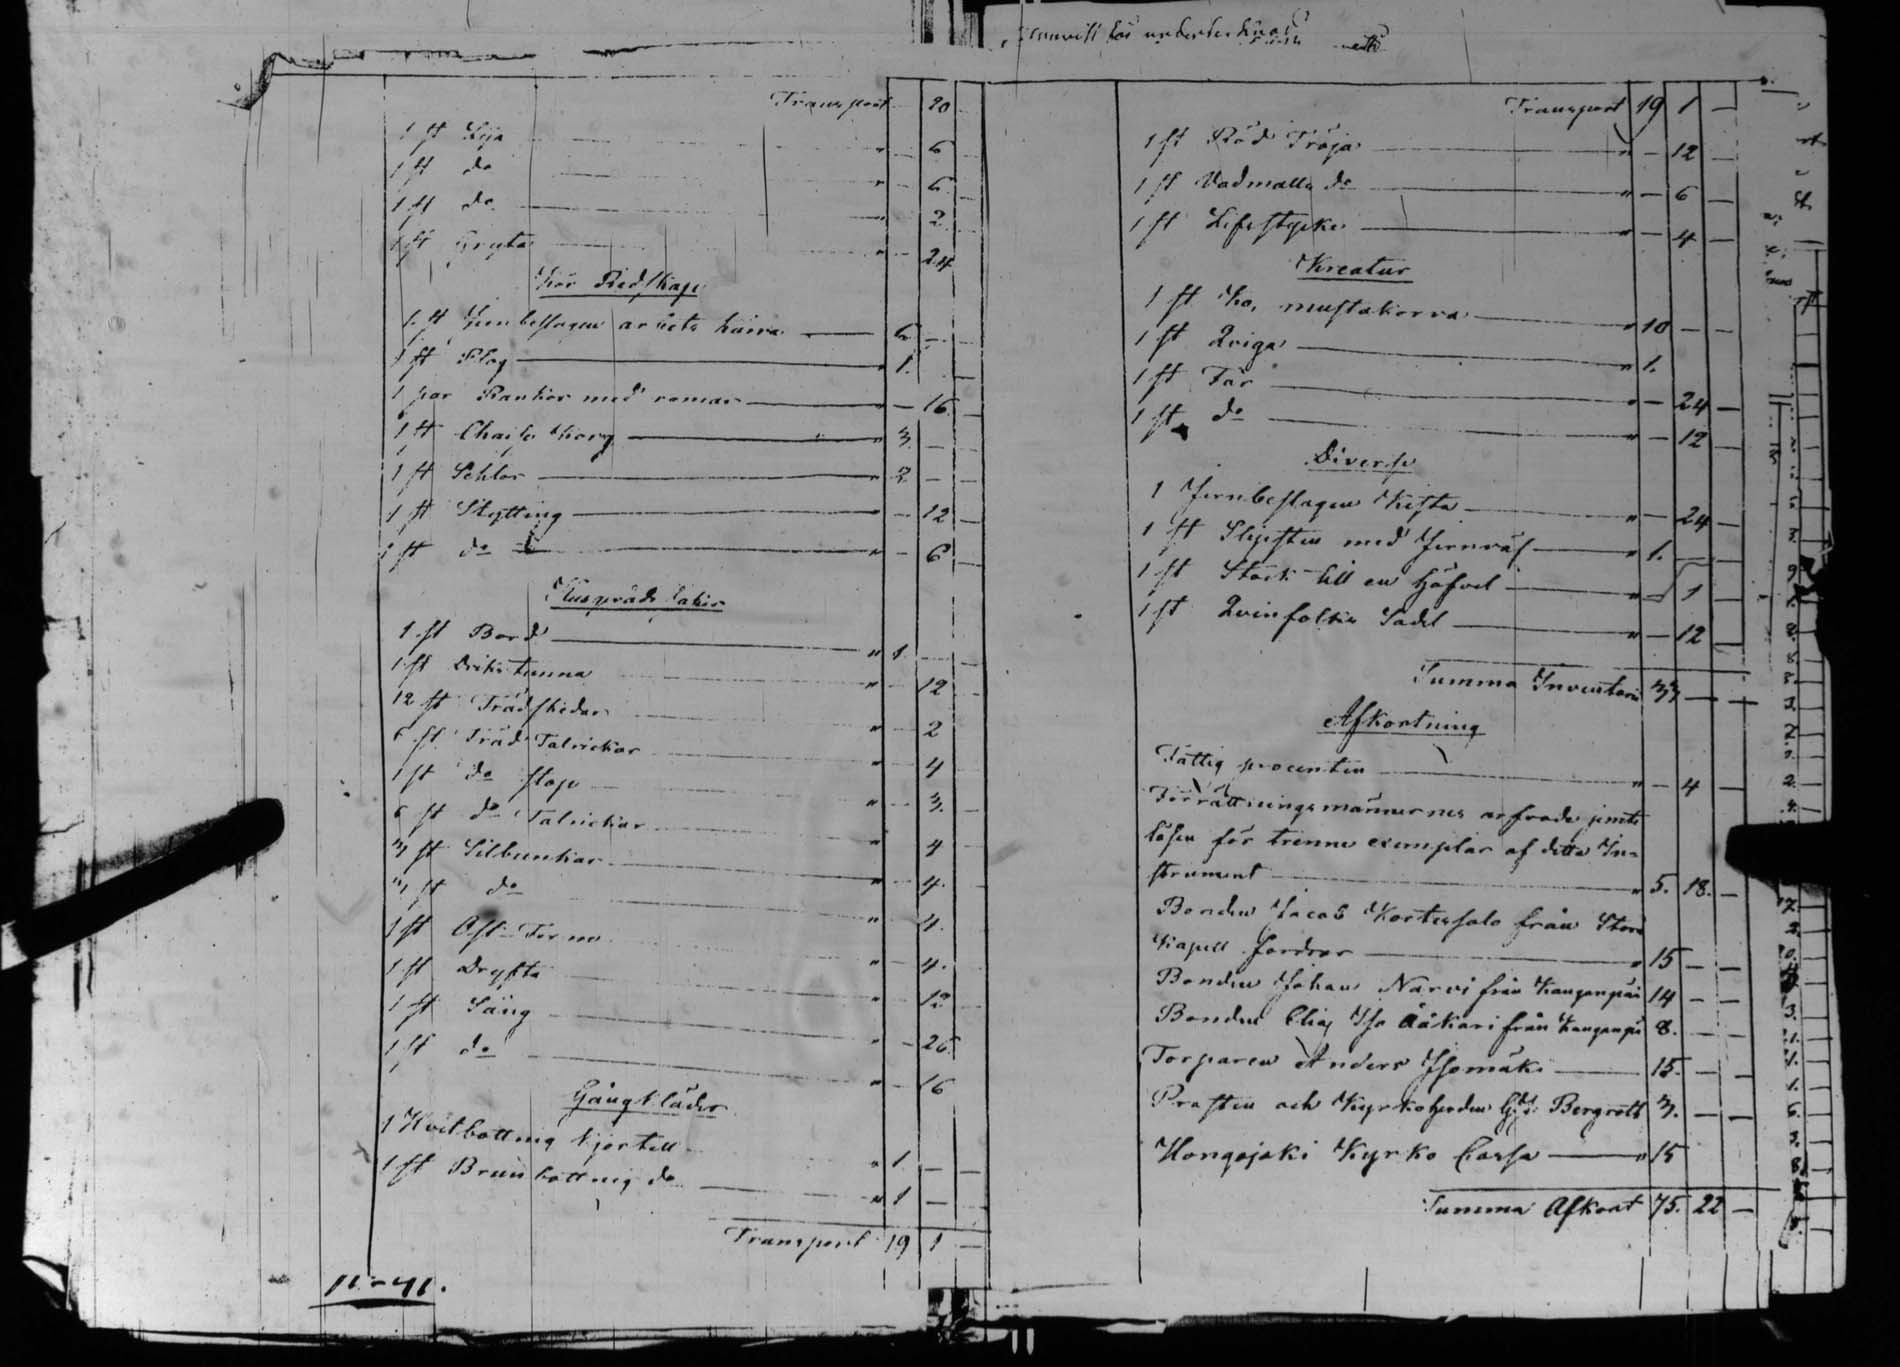 Transport 20
1 st Lija " 6
1 st do " 6
1 st do " 2
1 st Gryta " - 24
Kör Redskap
1 st Jern beslagen arbets kärra 6 -
1 st Plog " 1. -
1 par Rankor med " - 16 -
1 st Chaise Korg " 3. -
1 st " 2 -
1 st Stytting " - 12 -
1 st do " - 6 -
Husgeråds saker
1 st Bord " 1
1 st Drickstunna " 12
12 st Trädskedar " 2
6 st Träd Talrickar " 4
1 st do stop " 3.
6 st do Talrickar " 4
3 st Silbunkar " 4.
3 st do " 4.
1 st Ost-Form " 4.
1 st Dryfta " 12
1 st Säng " - 26
1 st do " 16
Gångkläder
1 Hvitbottnig kjortell " 1 -
1 st Brunbottnig do " 1 -
Transport 19 1 -
11-41.
Transport 19 1 -
1 st Röd Tröja " - 12 -
1 st Vadmals do " - 6 -
1 st Lifstycke " - 4 -
Kreatur
1 st Ko, mustakorva " 10 - -
1 st Qviga " 1.
1 st Får " - 24 -
1 st do " - 12
Diverse
1 Jernbeslagen Kista " - 24 -
1 st Slipsten med Jernväf " 1. -
1 st Stock till en Höfvel " - 1 -
1 st Qvinfolks Sadel " - 12 -
Summa Inventari 33 - -
Afkortning
Fattig procenten " - 4 -
Förrättningsmännernes arfvode jemte
lösen för trenne exemplar af detta In-
strument " 5. 18. -
Bonden Jacob Kortesalo från Storå
Kapell fordrar " 15 - -
Bonden Johan Narvi från Kanganpää 14 - -
Bonden Elias Iso från 8. - -
Torparen Anders Isomäki 15. - -
Prosten och Kyrkoherden Bergroth 3. - -
Hongojoki Kyrko Cassa " 15
Summa Afkort 75. 22 -